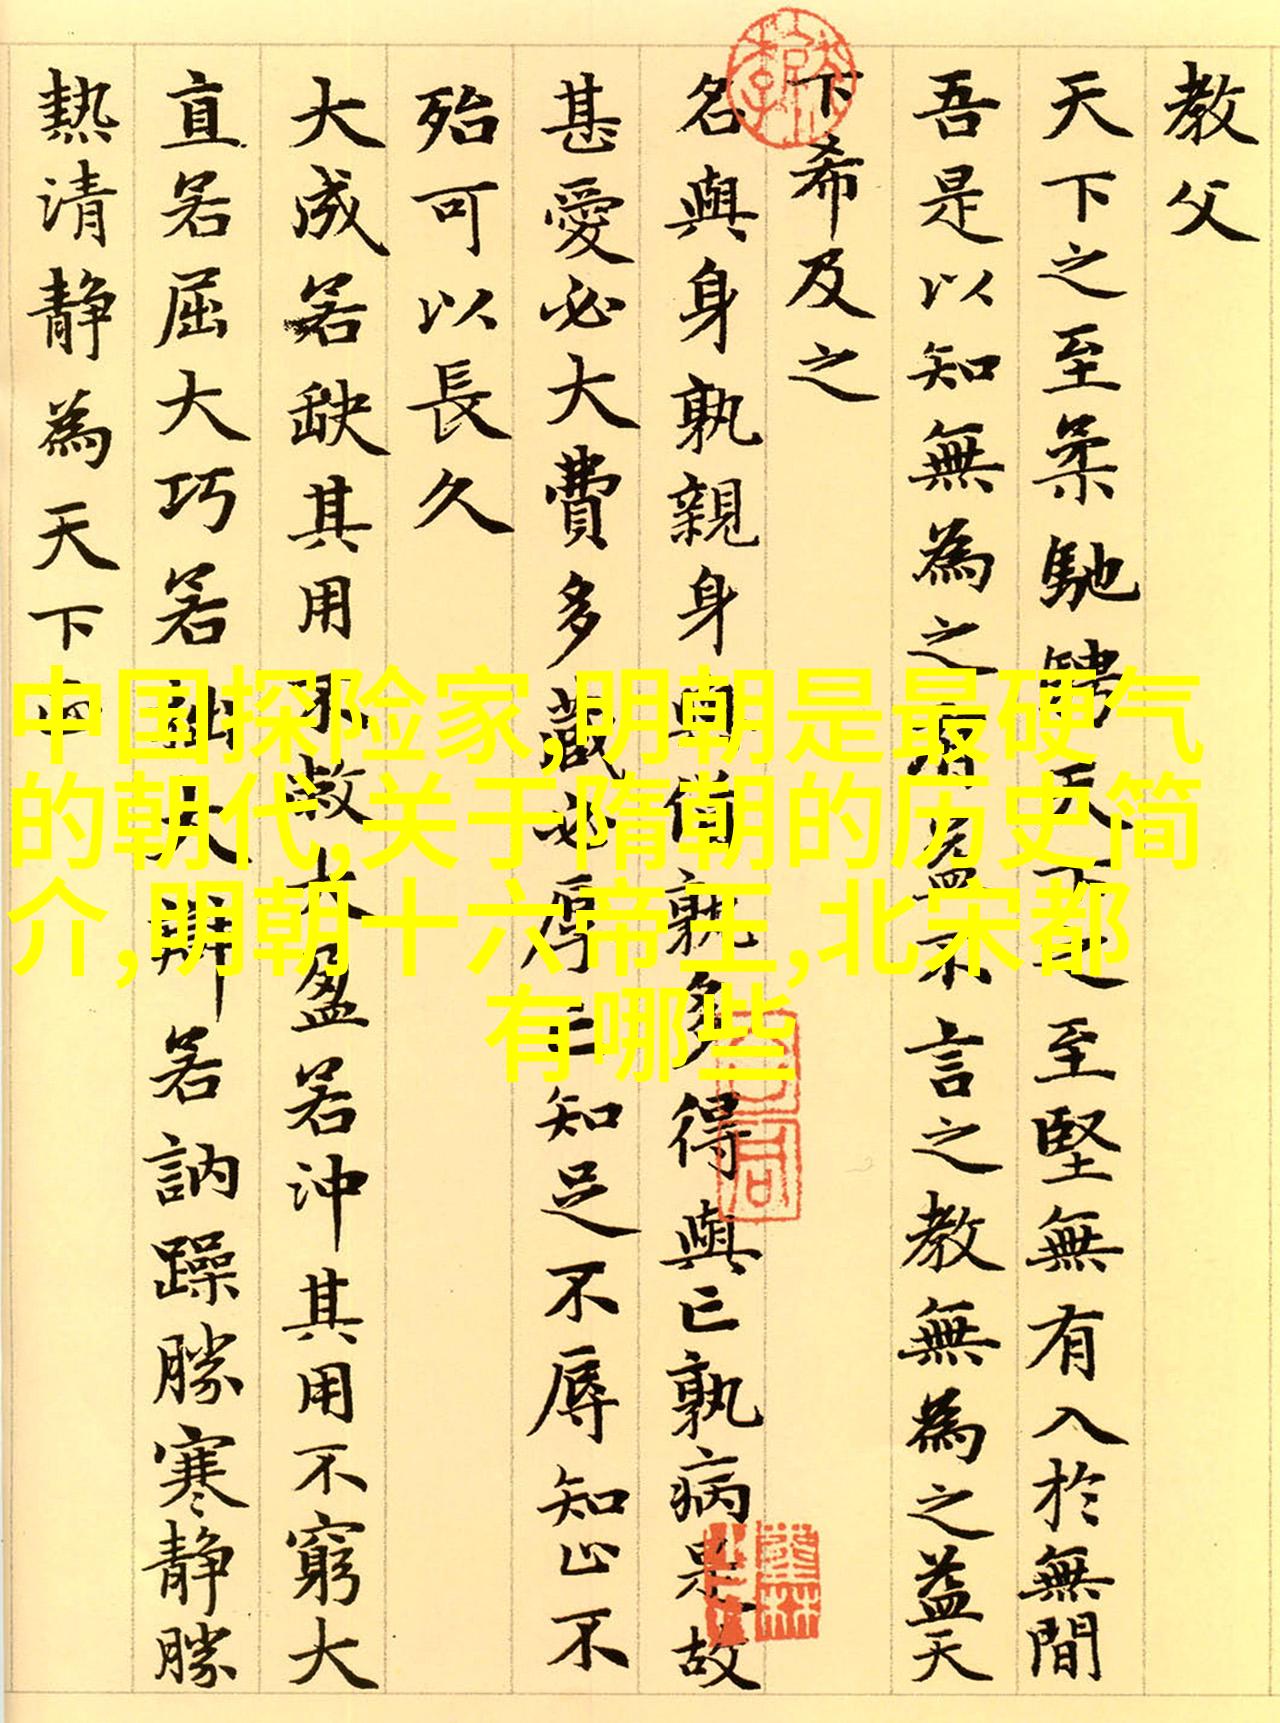 教父
天下之至柔馳騁天下之至堅無有入於無間
吾是以知無為之有益不言之教無為之益天
下希及之
名與身孰親身與貨孰多得與亡孰病是故
甚愛必大費多藏必厚亡知足不辱知止不
殆可以長久
大成若缺其用不敝大盈若沖其用不窮大
直若屈大巧若拙大辯若訥躁勝寒靜勝
熱清靜為天下正
中国探险家,明朝是最硬气
的朝代,关于隋朝的历史简
介,明朝十六帝王,北宋都
有哪些